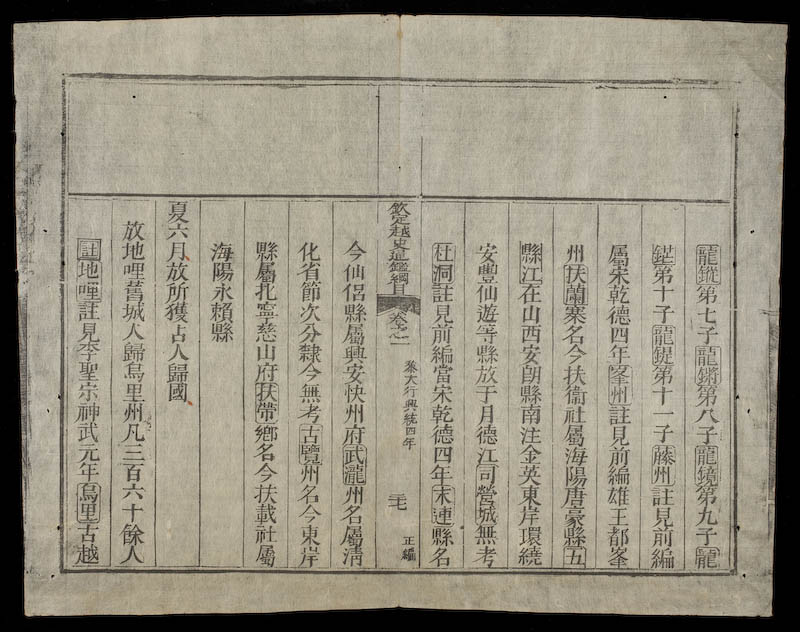 龍鏦第七子龍鏘第八子龍鏡第九子龍
鋌第十子龍鍉第十一子藤州註見前編
屬宋乾德四年峯州註見前編雄王都峯
州扶蘭寨名今扶衞社屬海陽唐豪縣五
縣江在山西安朗縣南注金英東岸環繞
安豐仙遊等縣放于月德江司營城無考
杜洞註見前編當宋乾德四年末連縣名
欽定越史通鑑綱目 卷之一 黎大行興統四年 正編
今仙侶縣屬興安快州府武瀧州名屬清
化省節次分隸今無考古覽州名今東岸
縣屬北寧慈山府扶帶鄉名今扶載社屬
海陽永賴縣
夏六月放所獲占人歸國
放地哩舊城人歸烏里州凡三百六十餘人
註地哩註見李聖宗神武元年烏里古越